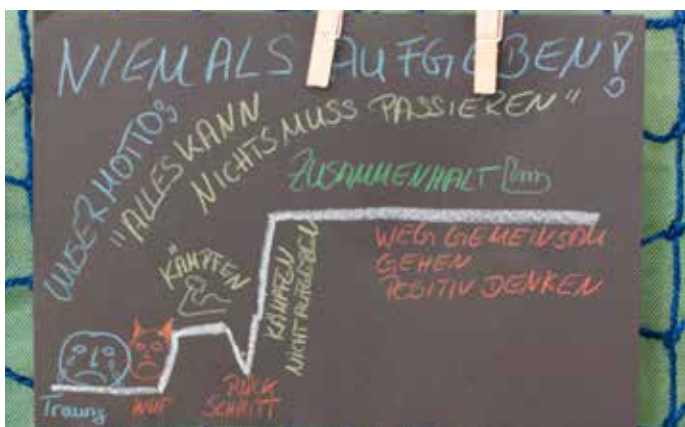 NIEMALS AUFGEBEN!
UNSER MOTTO:
"ALLES KANN
NICHTS MUSS PASSIEREN"
ZUSAMMENHALT
"KÄMPFEN
KÄMPFEN
NICHT AUFGEBEN
WEG GEMEINSAM
GEHEN
POSITIV DENKEN
Traurig
WUT
RÜCK
SCHRITT